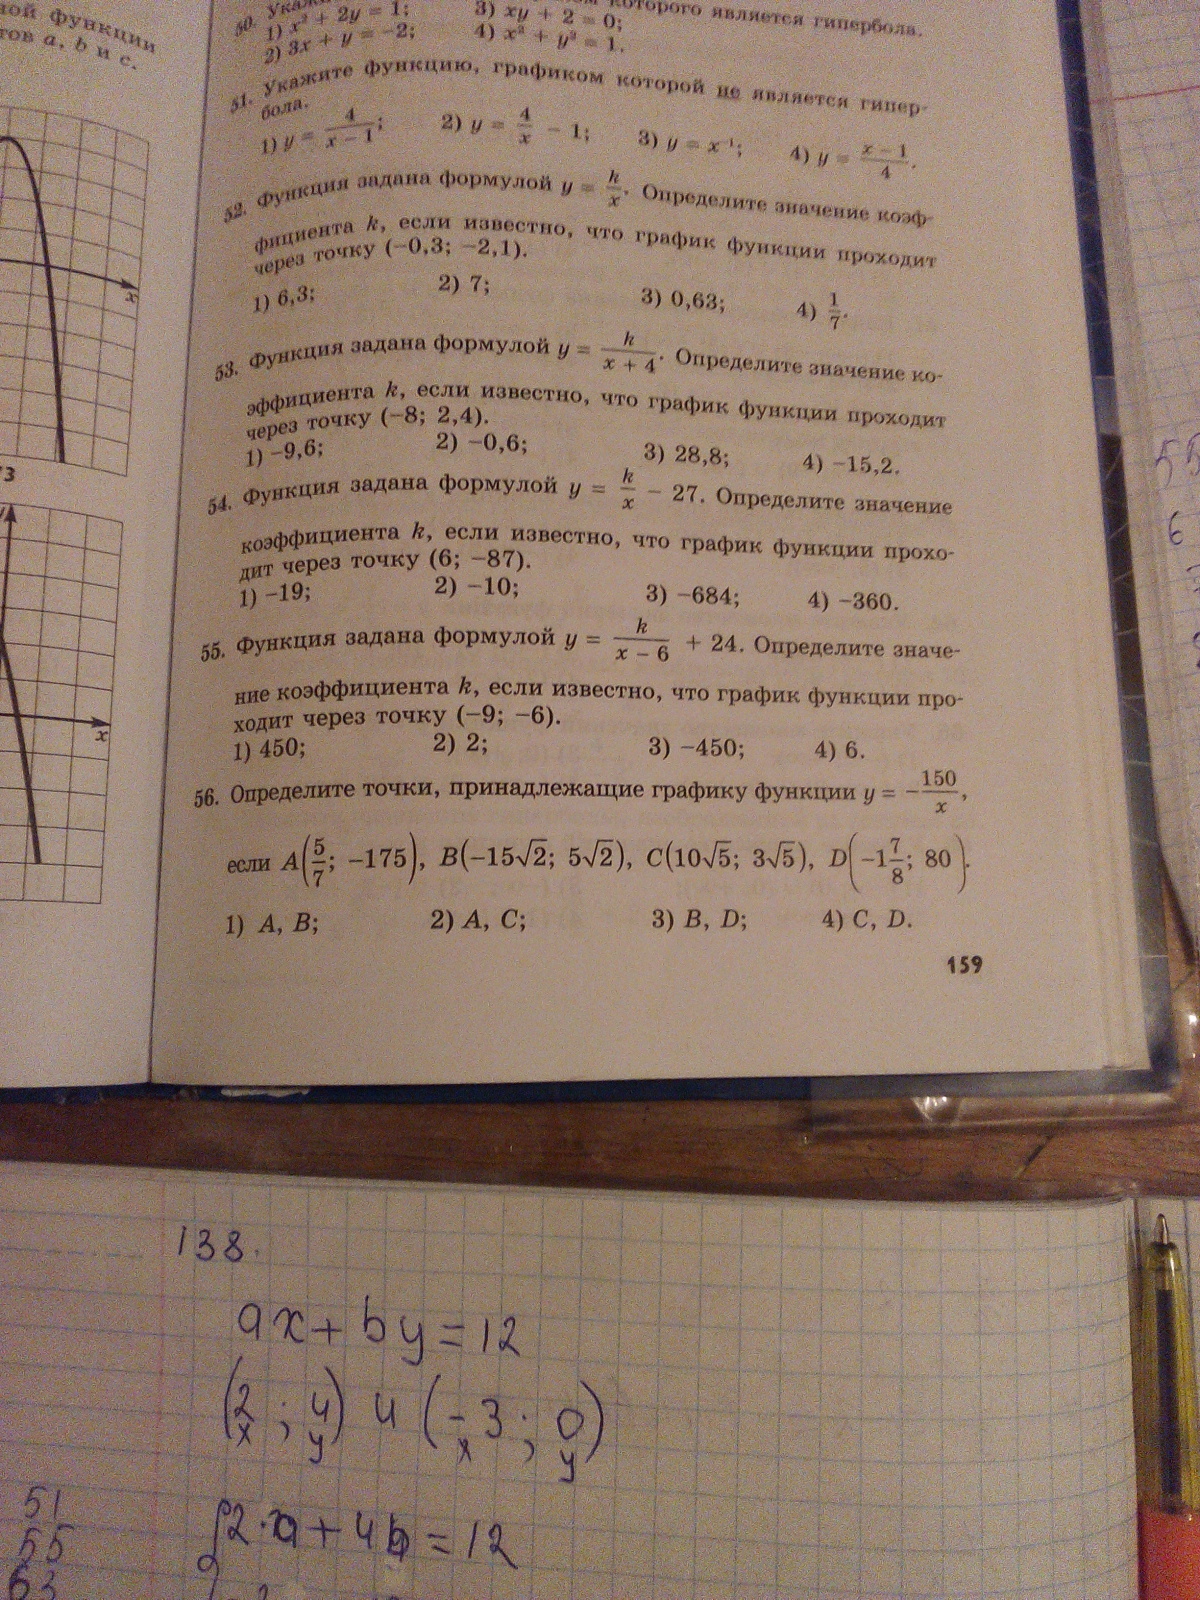 ной функции
тов a, b и с.
x
73
y
x
50. Укажи которого является гипербола.
1) x² + 2y = 1; 3) xy + 2 = 0;
2) 3x + y = −2; 4) x² + y² = 1.
51. Укажите функцию, графиком которой не является гипер-
бола.
1) y = 4/(x − 1); 2) y = 4/x − 1; 3) y = x⁻¹; 4) y = (x − 1)/4.
52. Функция задана формулой y = k/x. Определите значение коэф-
фициента k, если известно, что график функции проходит
через точку (−0,3; −2,1).
1) 6,3; 2) 7; 3) 0,63; 4) 1/7.
53. Функция задана формулой y = k/(x + 4). Определите значение ко-
эффициента k, если известно, что график функции проходит
через точку (−8; 2,4).
1) −9,6; 2) −0,6; 3) 28,8; 4) −15,2.
54. Функция задана формулой y = k/x − 27. Определите значение
коэффициента k, если известно, что график функции прохо-
дит через точку (6; −87).
1) −19; 2) −10; 3) −684; 4) −360.
55. Функция задана формулой y = k/(x − 6) + 24. Определите значе-
ние коэффициента k, если известно, что график функции про-
ходит через точку (−9; −6).
1) 450; 2) 2; 3) −450; 4) 6.
56. Определите точки, принадлежащие графику функции y = −150/x,
если A(5/7; −175), B(−15√2; 5√2), C(10√5; 3√5), D(−1 7/8; 80).
1) A, B; 2) A, C; 3) B, D; 4) C, D.
159
138.
ax + by = 12
(2; 4) и (−3; 0)
x y x y
{2·a + 4b = 12
51
55
63